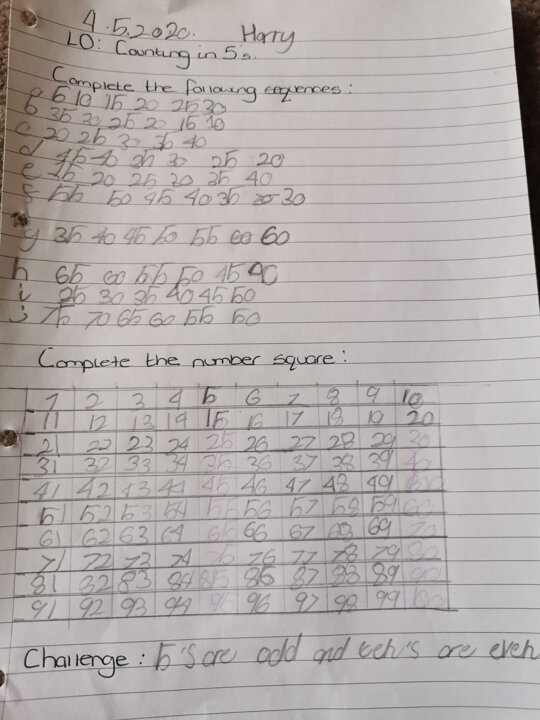 4.5.2020. Harry
LO: Counting in 5's.
Complete the following sequences:
a 5 10 15 20 25 30
b 35 30 25 20 15 10
c 20 25 30 35 40
d 45 40 35 30 25 20
e 15 20 25 30 35 40
f 55 50 45 40 35 30
g 35 40 45 50 55 60 60
h 65 60 55 50 45 40
i 25 30 35 40 45 50
j 75 70 65 60 55 50
Complete the number square:
1 2 3 4 5 6 7 8 9 10
11 12 13 14 15 16 17 18 19 20
21 22 23 24 25 26 27 28 29 30
31 32 33 34 35 36 37 38 39 40
41 42 43 44 45 46 47 48 49 50
51 52 53 54 55 56 57 58 59 60
61 62 63 64 65 66 67 68 69 70
71 72 73 74 75 76 77 78 79 80
81 82 83 84 85 86 87 88 89 90
91 92 93 94 95 96 97 98 99 100
Challenge: 5's are odd and teh's are even